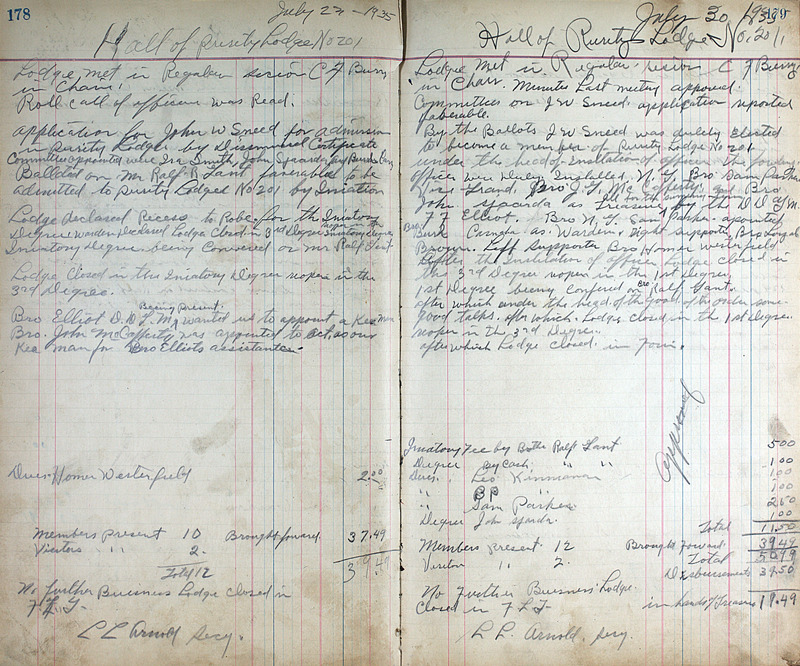 178
July 22 - 1935
Hall of Purity Lodge No 201
Lodge met in Regular session C F Burry
in Chair.
Roll call of officers was Read.
application for John W Sneed for admission
in Purity Lodge by Dismissal Certificate
Committee appointed were Ira Smith, John Sparda,
Balloted on Mr Ralf R Gant favorable to be
admitted to Purity Lodge No 201 by
Lodge declared Recess to Robe for the
Degree Warden declared Lodge Closed in 3rd Degree
Degree being on Mr Ralf Gant
Lodge Closed in the Degree in the
3rd Degree.
Being present
Bro Elliot D.D.G.M. wanted us to appoint a Kee Man
Bro. John McCafferty was appointed to Act. as our
Kee man for Bro Elliots assistance.
Dues Homer Westerfield 2.00
Members Present 10 Brought forward 37.49
Visitors " 2
Total 12
39.49
No further Business Lodge closed in
F. L. T.
L L Arnold Secy.
179
July 30, 1935
Hall of Purity Lodge No. 201
Lodge met in Regular session C F Burry
in Chair. Minutes Last meeting approved.
Committee on J W Sneed application reported
faberable.
By the Ballots J W Sneed was duly Elected
to become a member of Purity Lodge No 201
under the head of of officers the
officers was Duly Installed. N. G. Bro Sam Parker
Vice Grand, Bro J. G. McCafferty. and Bro
John Sparda as by the D D G M.
F F Elliot. Bro N. G. Sam Parker. apointed
Bro as Warden, Right supporter, Bro
Left Supporter Bro Homer Westerfield
after the of officers Lodge closed in
the 3rd Degree in the 1st Degree
1st Degree being confered on Bro Ralf Gant.
after which under the head of the Good of the order some
good talks. after which. Lodge closed in the 1st Degree
in the 3rd Degree.
after which Lodge closed in Form.
Approved
Fee by Brothe Ralf Gant 5 00
Degree By Cash. " " 1 00
Dues. Leo Kinnaman 1 00
" B P " 1 00
" Sam Parker 2 50
Degree John Sparda. 1 00
Total 11.50
Members Present 12 Brought Forward 39 49
Visitor " 2. Total 50 99
Disbursements 39.50
No Further Business Lodge
Closed in F L T in hands of Treasure 11.49
L L. Arnold, Secy.